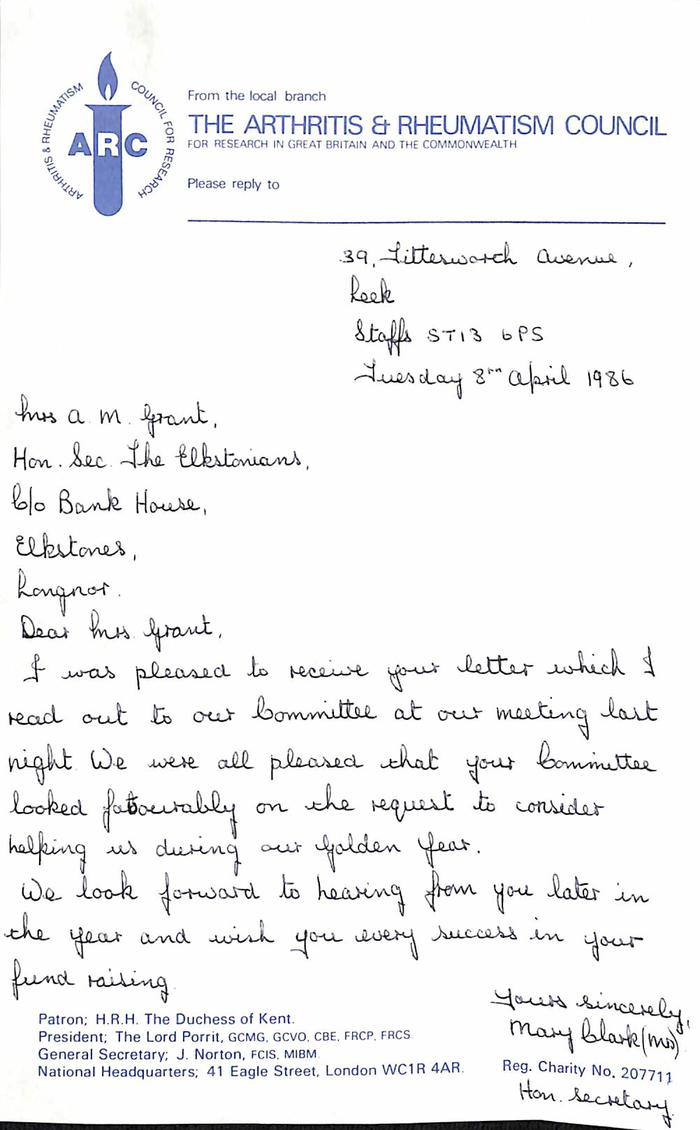 ARTHRITIS & RHEUMATISM COUNCIL FOR RESEARCH
ARC
From the local branch
THE ARTHRITIS & RHEUMATISM COUNCIL
FOR RESEARCH IN GREAT BRITAIN AND THE COMMONWEALTH
Please reply to
39, Litterworch Avenue,
Leek
Staffs ST13 6PS
Tuesday 8th April 1986
Mrs A. M. Grant,
Hon. Sec. The Elkstonians,
C/o Bank House,
Elkstones,
Longnor.
Dear Mrs Grant,
I was pleased to receive your letter which I
read out to our Committee at our meeting last
night. We were all pleased that your Committee
looked favourably on the request to consider
helping us during our Golden Year.
We look forward to hearing from you later in
the year and wish you every success in your
fund raising.
Yours sincerely,
Mary Clark (Mrs)
Hon. Secretary.
Patron; H.R.H. The Duchess of Kent.
President; The Lord Porrit, GCMG, GCVO, CBE, FRCP, FRCS.
General Secretary; J. Norton, FCIS, MIBM.
National Headquarters; 41 Eagle Street, London WC1R 4AR.
Reg. Charity No. 207711